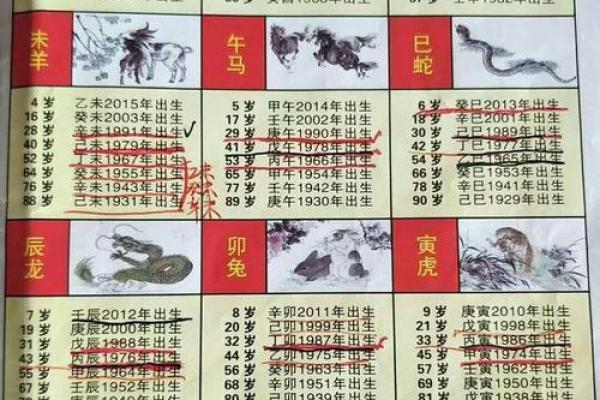 未羊
4岁 乙未2015年出生
16岁 癸未2003年出生
28岁 辛未1991年出生
40岁 己未1979年出生
52岁 丁未1967年出生
64岁 癸未1955年出生
76岁 辛未1943年出生
88岁 己未1931年出生
午马
5岁 甲午2014年出生
17岁 壬午2002年出生
29岁 庚午1990年出生
41岁 戊午1978年出生
53岁 丙午1966年出生
65岁 甲午1954年出生
77岁 壬午1942年出生
89岁 庚午1930年出生
巳蛇
6岁 癸巳2013年出生
18岁 辛巳2001年出生
30岁 己巳1989年出生
42岁 丁巳1977年出生
54岁 乙巳1965年出生
66岁 癸巳1953年出生
78岁 辛巳1941年出生
90岁 己巳1929年出生
辰龙
7岁 壬辰2012年出生
19岁 庚辰2000年出生
31岁 戊辰1988年出生
43岁 丙辰1976年出生
55岁 甲辰1964年出生
67岁 壬辰1952年出生
卯兔
8岁 辛卯2011年出生
20岁 己卯1999年出生
32岁 丁卯1987年出生
44岁 乙卯1975年出生
56岁 癸卯1963年出生
68岁 辛卯1951年出生
80岁 己卯1939年出生
寅虎
9岁 庚寅2010年出生
21岁 戊寅1998年出生
33岁 丙寅1986年出生
45岁 甲寅1974年出生
57岁 壬寅1962年出生
69岁 庚寅1950年出生
81岁 戊寅1938年出生